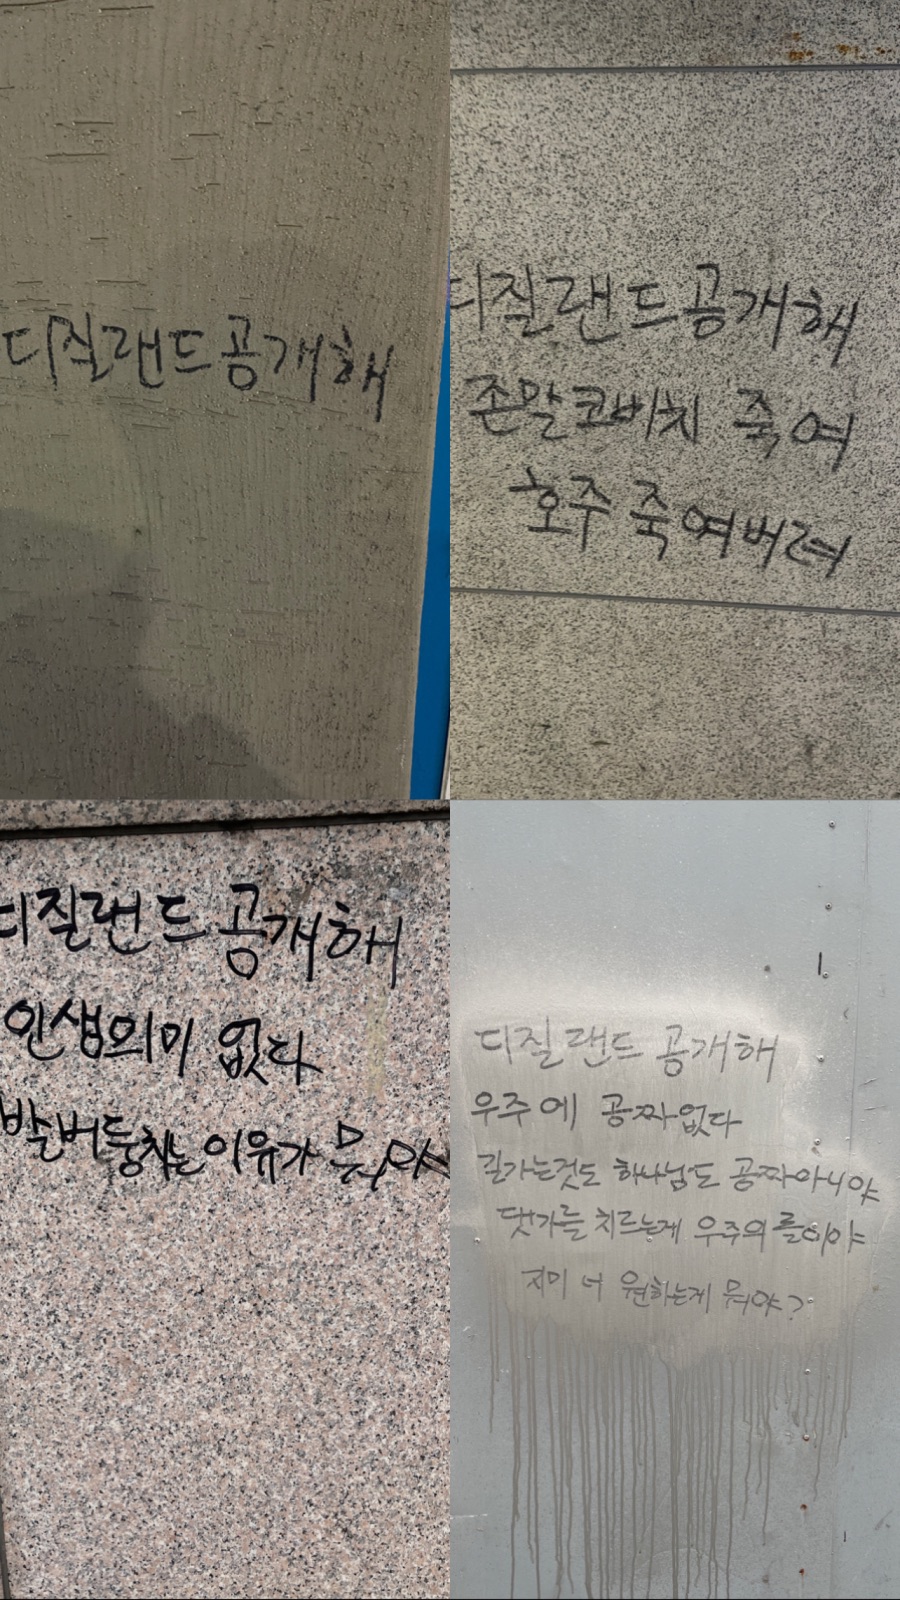 디질랜드공개해
디질랜드공개해
존말코비치 죽여
호주 죽여버려
디질랜드 공개해
인생의미 없다
발버둥치는이유가 뭐야
디질랜드 공개해
우주에 공짜없다
길가는것도 하나님도 공짜아니야
댓가를 치르는게 우주의 룰이야
지미 너 원하는게 뭐야?